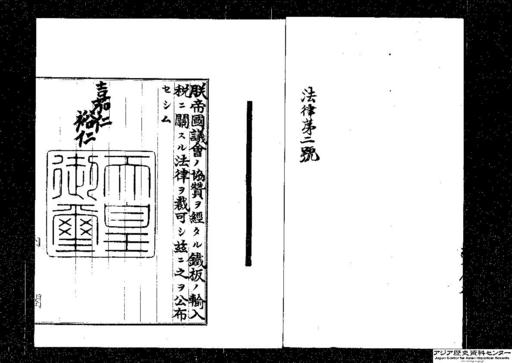 法律第二號
朕帝國議會ノ協贊ヲ經タル鐵板ノ輸入
税ニ關スル法律ヲ裁可シ茲ニ之ヲ公布
セシム
嘉仁
裕仁
天皇
御璽
アジア歴史資料センター
Japan Center for Asian Historical Records